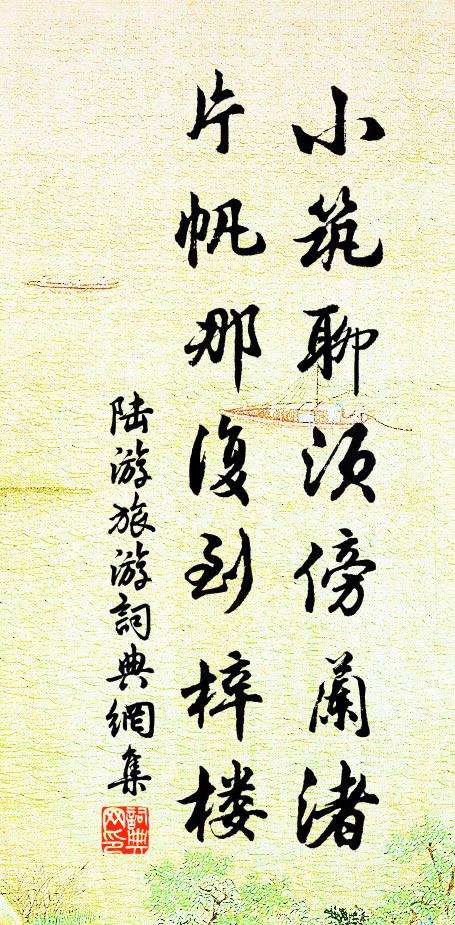 小筑聊须傍蘭渚
片帆那復到梓楼
陆游旅游詞典網集
詞典网印